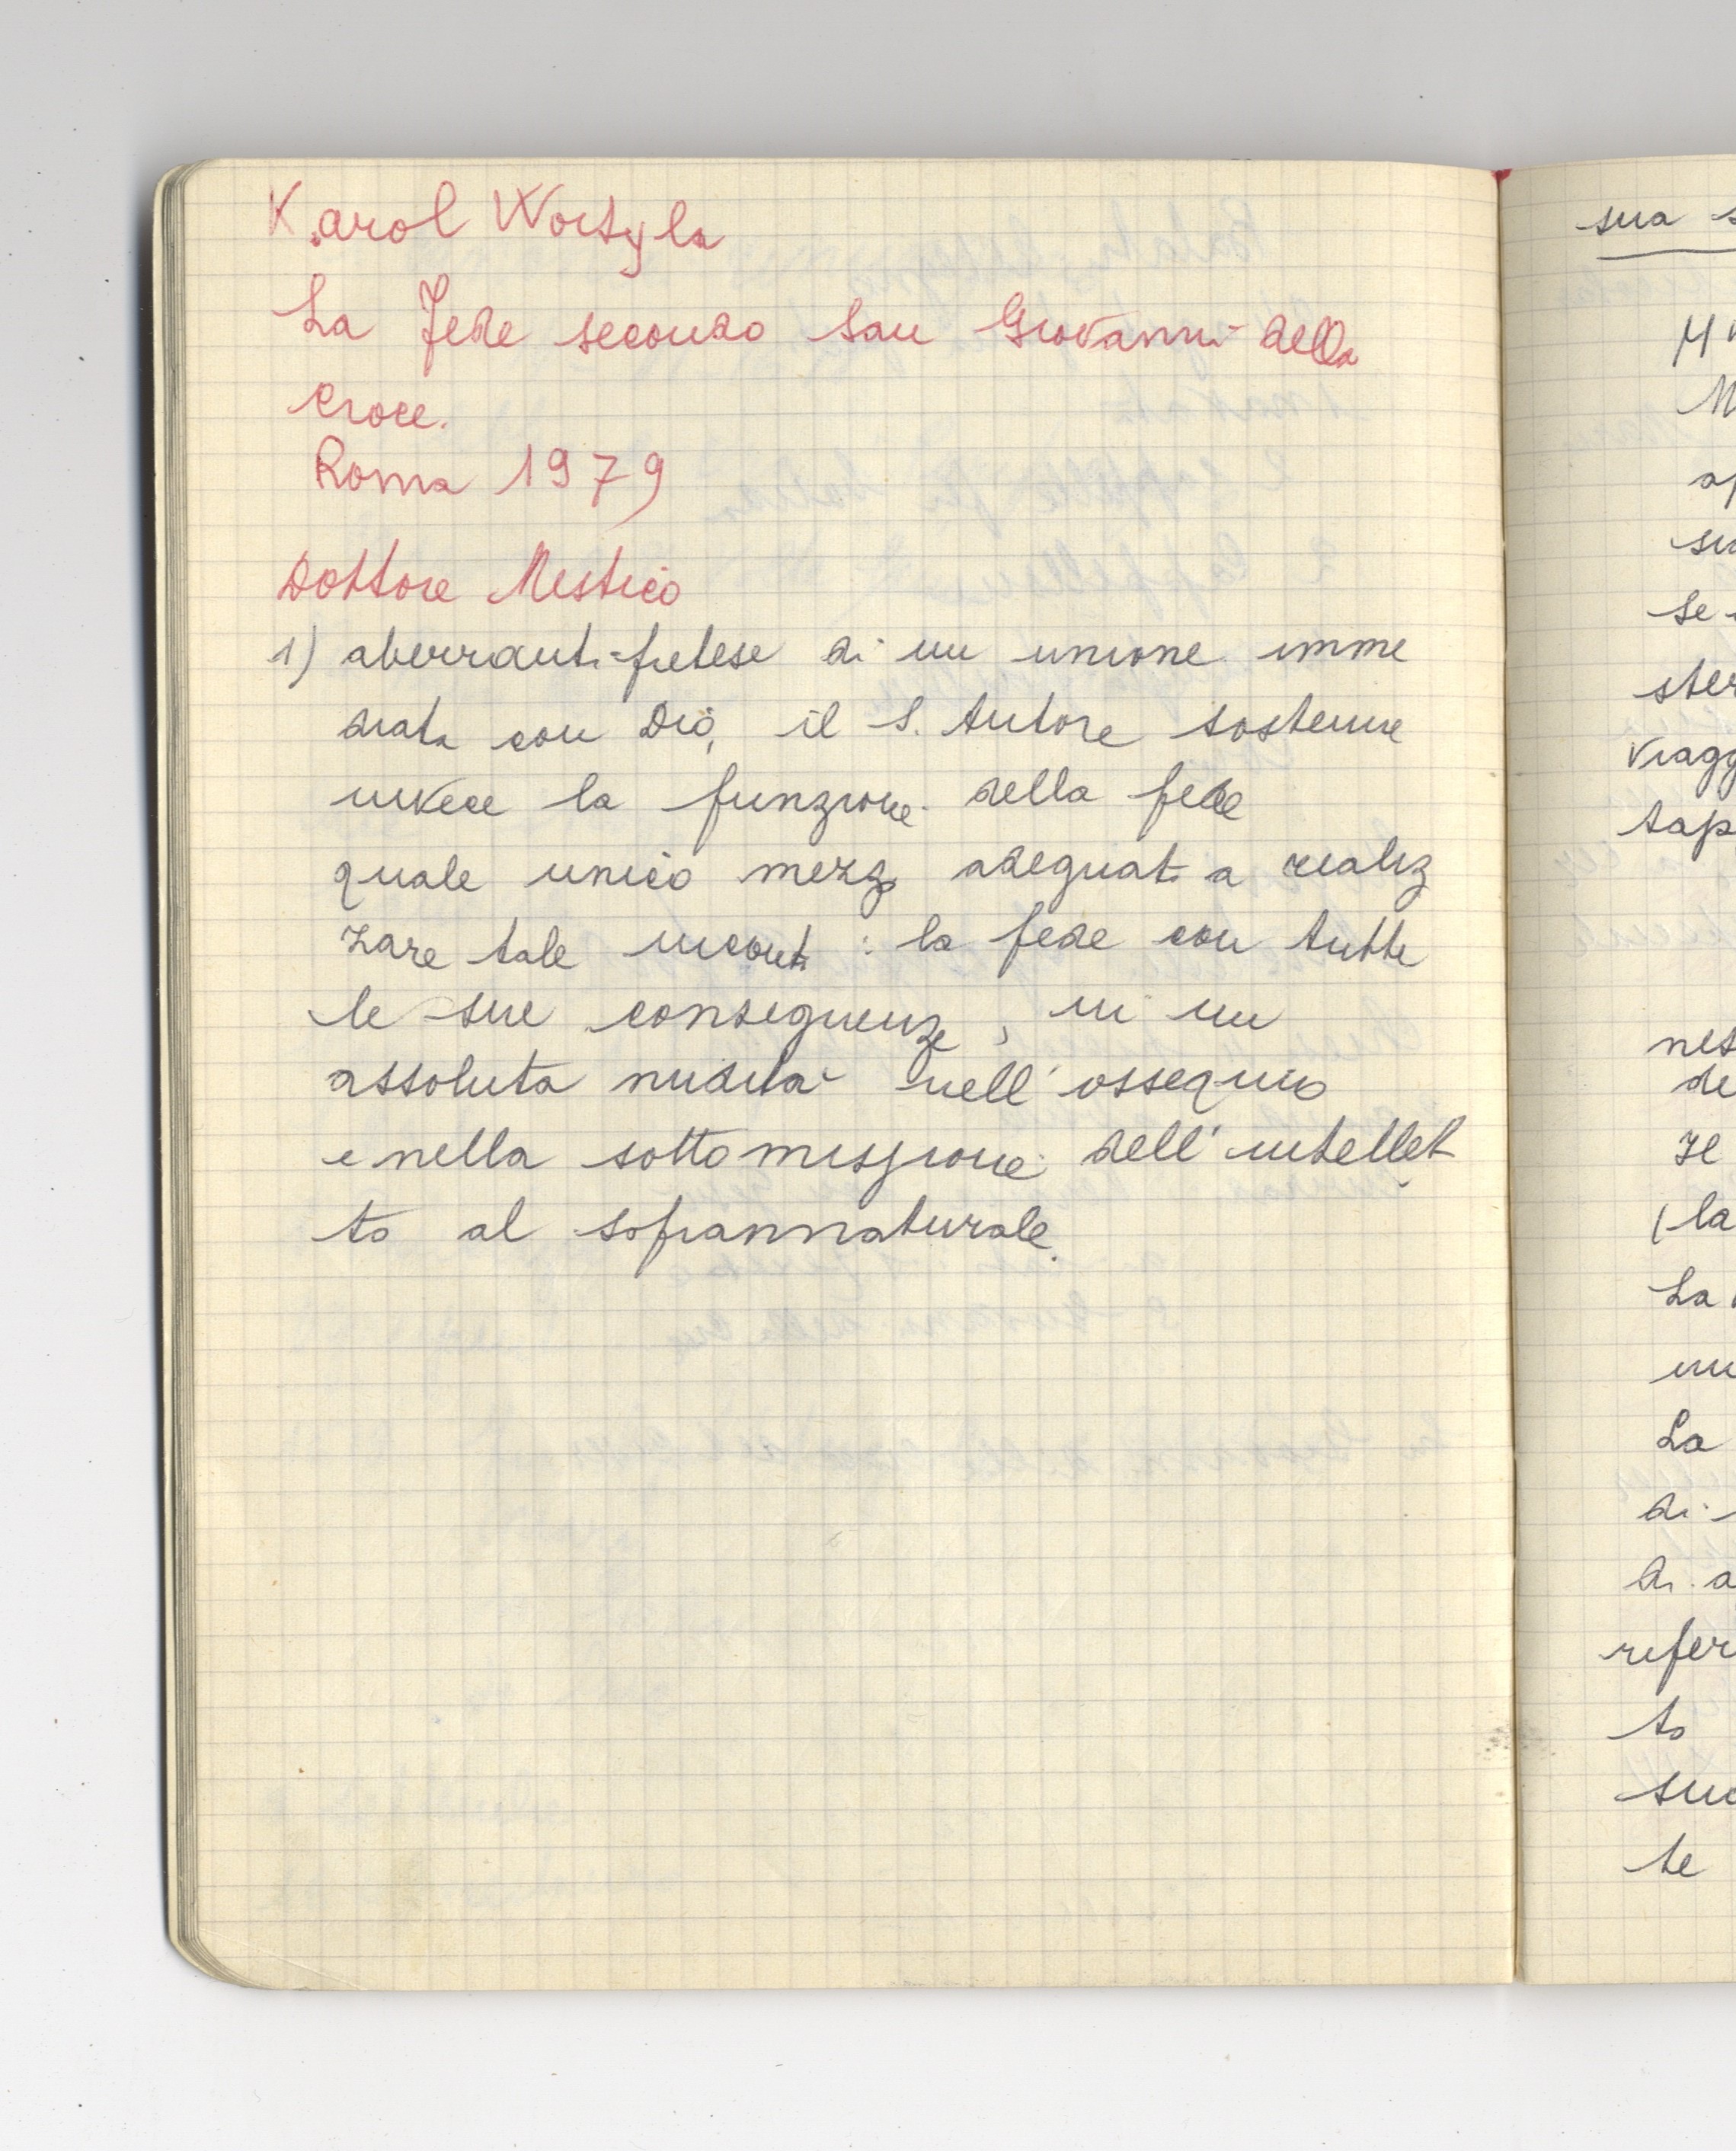 Karol Woityla
La Fede secondo San Giovanni della
Croce.
Roma 1979
Dottore Mistico
1) aberranti pretese di un unione imme
diata con Dio, il S. Autore sostenne
invece la funzione della fede
quale unico mezzo adeguato a realiz
zare tale incontro : la fede con tutte
le sue conseguenze, in un
assoluta nudità nell'ossequio
e nella sottomissione dell'intellet
to al soprannaturale.
sua
viagg
nes
de
Il
(la
La
La
di
di a
refer
to
te